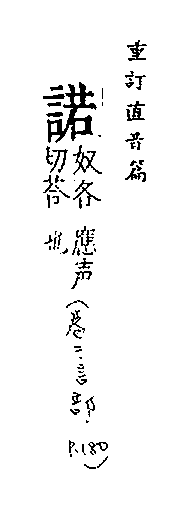 重訂直音篇
諾 奴各切荅應声也(卷二·言部·P.180)